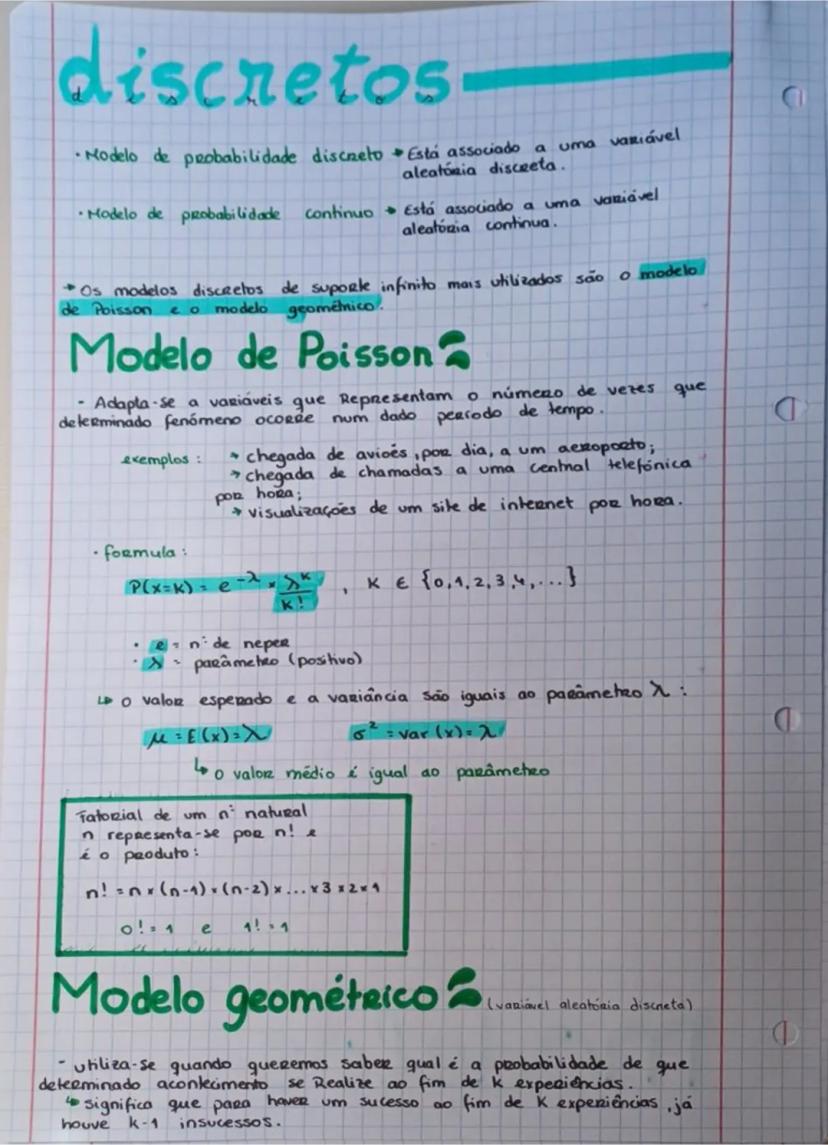 discretos
discretos
• Modelo de probabilidade discreto → Está associado a uma variável
aleatória discreta.
• Modelo de probabilidade continuo → Está associado a uma variável
aleatória continua.
→ Os modelos discretos de suporte infinito mais utilizados são o modelo
de Poisson e o modelo geométrico.
Modelo de Poisson
- Adapta-se a variáveis que Representam o número de vezes que
determinado fenómeno ocorre num dado período de tempo.
exemplos : → chegada de avioẽs, por dia, a um aeroporto;
→ chegada de chamadas a uma central telefónica
por hora;
→ visualizações de um site de internet por hora.
• formula :
P(x=k) = e^-λ × λ^k/k! , K ∈ {0,1,2,3,4,...}
• e = nº de neper
• λ = parâmetro (positivo)
↳ o valor esperado e a variância são iguais ao parâmetro λ :
μ = E(x) = λ σ² = var (x) = λ
↳ o valor médio é igual ao parâmetro
Fatorial de um nº natural
n representa-se por n! e
é o produto :
n! = n × (n-1) × (n-2) × ... × 3 × 2 × 1
0! = 1 e 1! = 1
Modelo geométrico (variável aleatória discreta)
- utiliza-se quando queremos saber qual é a probabilidade de que
determinado acontecimento se Realize ao fim de k experiências.
↳ significa que para haver um sucesso ao fim de k experiências, já
houve k-1 insucessos.